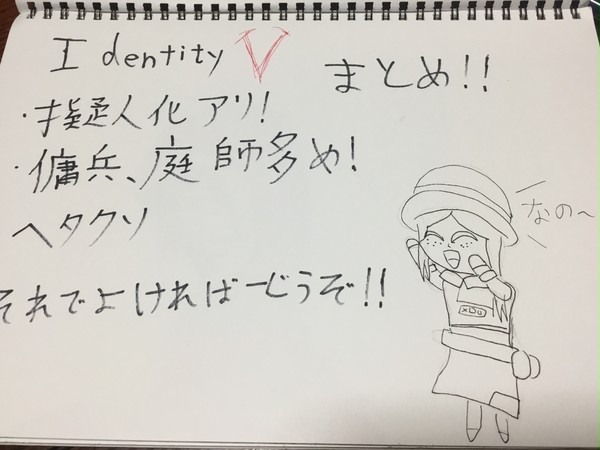 Identity V まとめ!!
・擬人化アリ!
・傭兵、庭師多め!
ヘタクソ
それでよければーどうぞ!!
なの〜